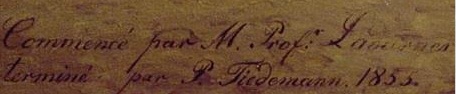 Commencé par M. Prof.r
terminé par P. Tiedemann. 1855.